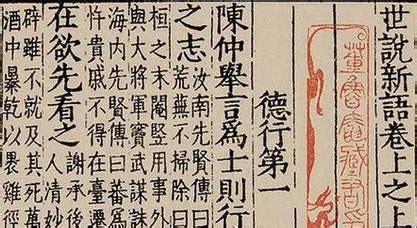 世說新語卷上之上
德行第一
陳仲舉言為士則行
之志
汝南先賢傳曰
荒蕪不掃除曰
桓之末閹豎用事外
與大將軍竇武謀誅
海內先賢傳曰蕃為
忤貴戚不得在臺遷
在欲先看之
謝承後
人清妙
辟雖不就及其死萬
酒中暴乾以裹雞徑